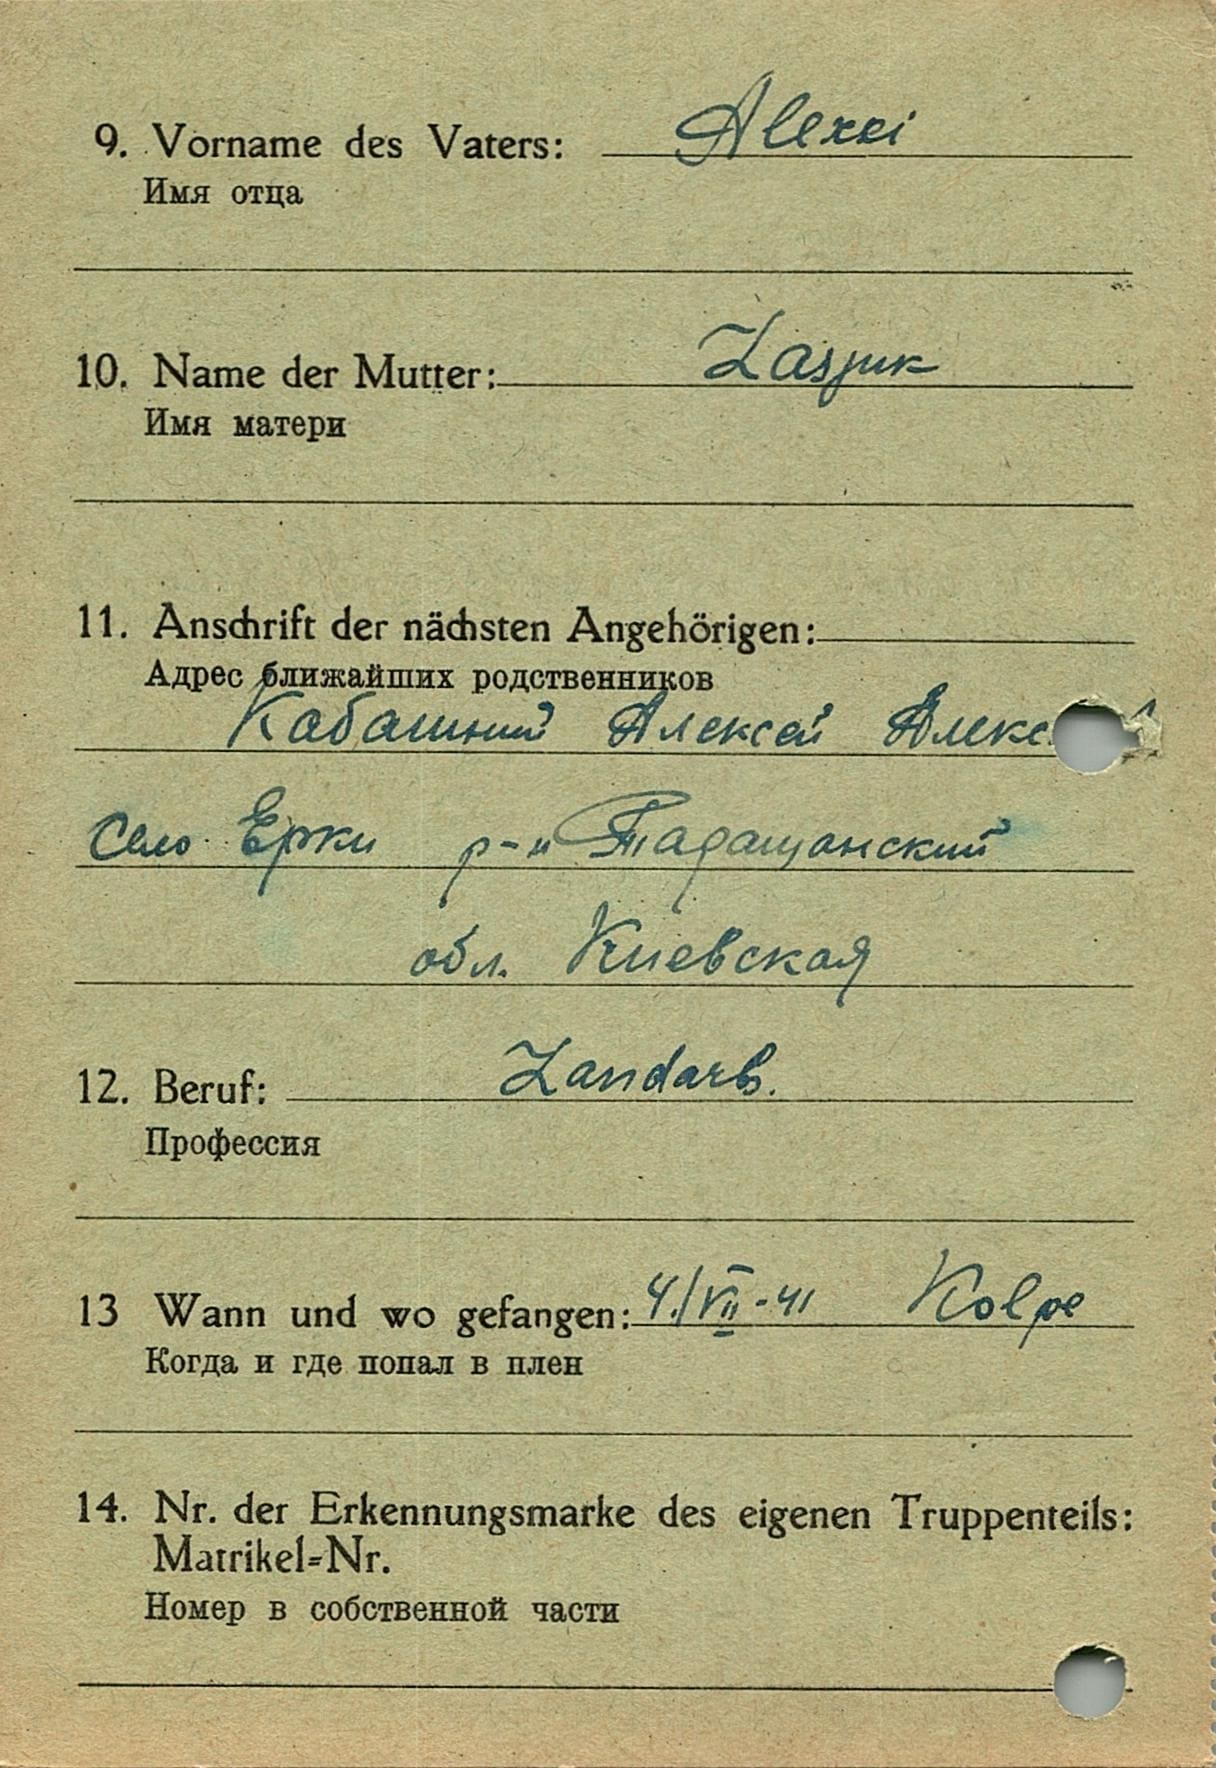 9. Vorname des Vaters: Alexei
Имя отца
10. Name der Mutter: Zasjuk
Имя матери
11. Anschrift der nächsten Angehörigen:
Адрес ближайших родственников
Кабашний Алексей Алекс
Село Ерки р-н Таращанский
обл. Киевская
12. Beruf: Landarb.
Профессия
13 Wann und wo gefangen: 4./VII-41 Kolpe
Когда и где попал в плен
14. Nr. der Erkennungsmarke des eigenen Truppenteils:
Matrikel=Nr.
Номер в собственной части